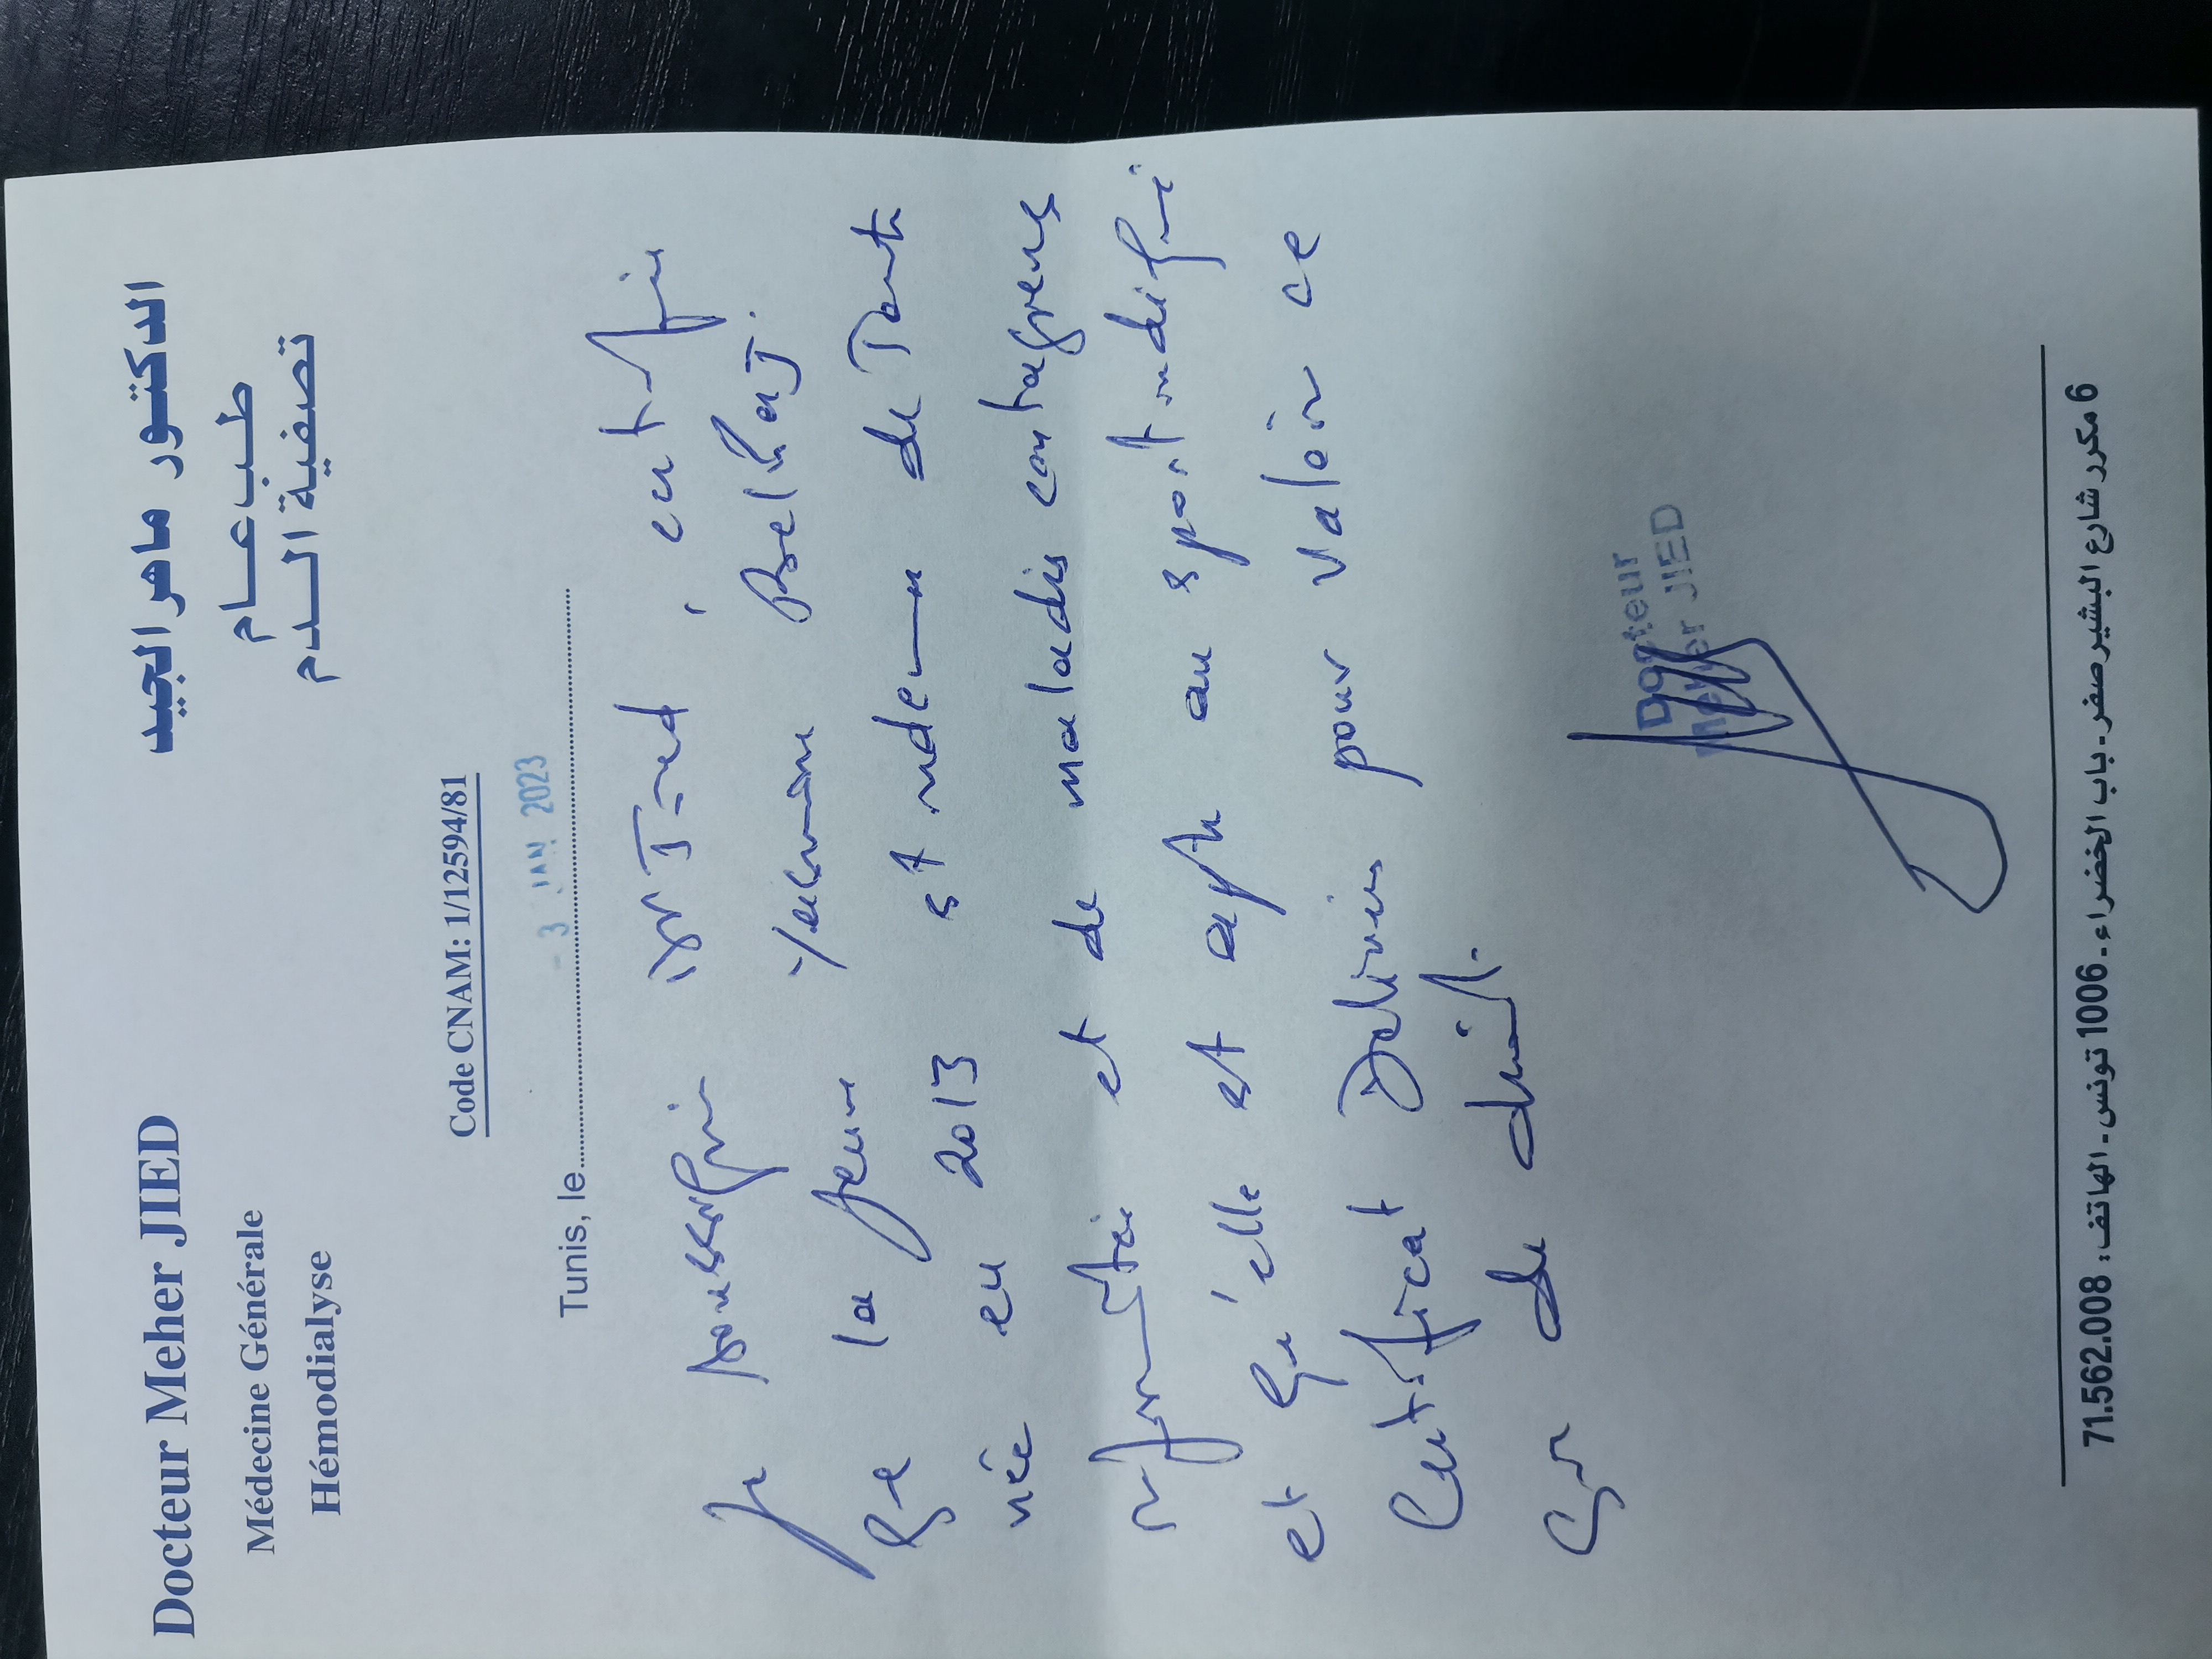 Docteur Meher JIED
Médecine Générale
Hémodialyse
الدكتور ماهر الجيد
طب عام
تصفية الدم
Code CNAM: 1/12594/81
Tunis, le - 3 JAN 2023
Je soussigné Dr J ied certifie
que la jeune Yasmine Belhaj
née en 2013 est indemne de toute
et de maladies contagieuse
et qu'elle est apte au sport indéfini
Certificat Délivré pour valoir ce
que de droit.
Docteur
Meher JIED
6 مكرر شارع البشير صفر - باب الخضراء - 1006 تونس - الهاتف : 71.562.008